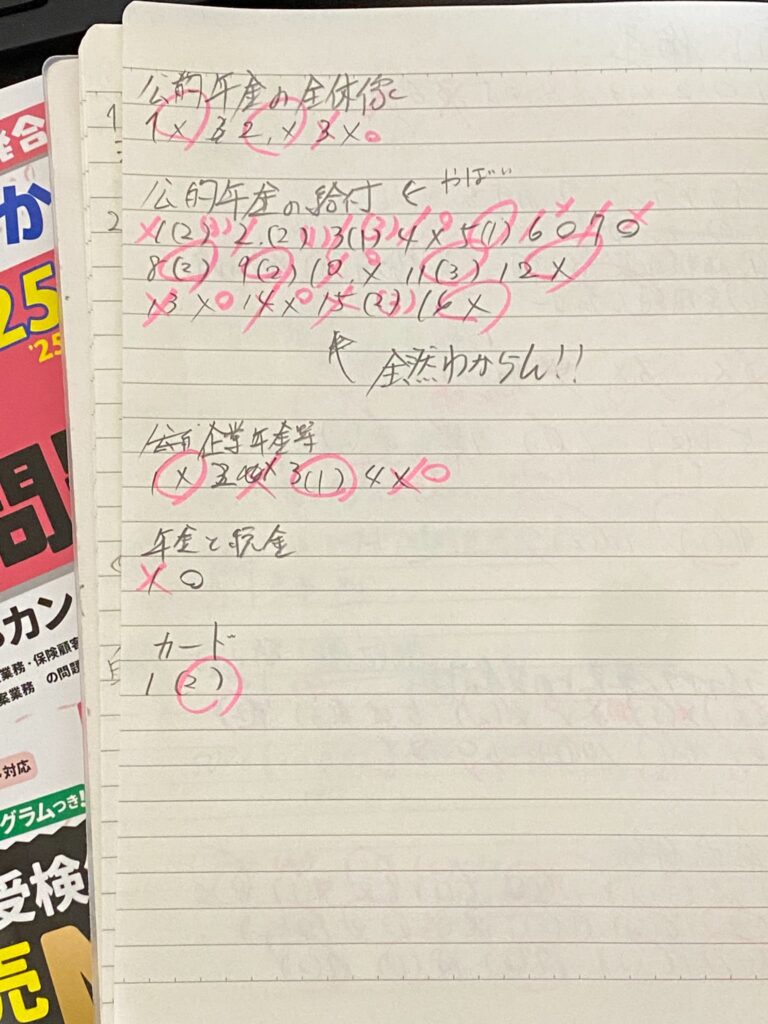 公的年金の全体像
1 × 2. × 3 × ○
公的年金の給付 ← やばい
1 (2) 2. (2) 3 (1) 4 × 5 (1) 6 ○ 7 ○
8 (2) 9 (2) 10. × 11 (3) 12 ×
13 × ○ 14 × ○ 15 (2) 16 ×
全然わからん!!
企業年金等
1 × 2 × 3 (1) 4 × ○
年金と税金
1 ○
カード
1 (2)
1
2
か
25
'25
問
カン
業務・保険顧客
案業務 の問題
対応
グラムつき!
受検
売